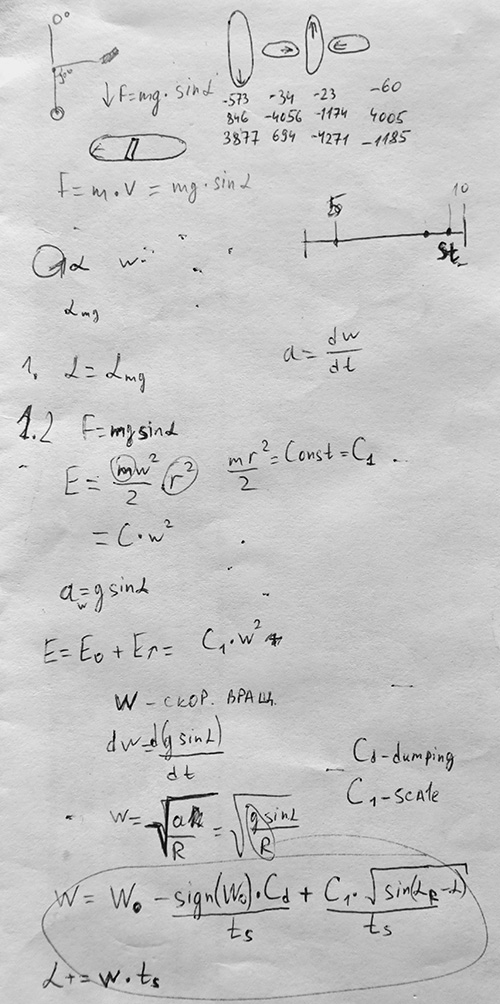 0°
90°
↓F=mg·sinα
-573 -34 -23 -60
846 -4056 -1174 4005
3877 694 -4271 -1185
F=m·V=mg·sinα
10
α w=
St
α mg
a=dw/dt
1. α=α mg
1.2 F=mgsinα
E=mw²/2 r² mr²/2=Const=C₁
=C·w²
a w=gsinα
E=E₀+E_r=C₁·w²
W-СКОР. ВРАЩ.
dw=d(gsinα)/dt
Cd-dumping
C₁-SCAlE
W=√(a/R)=√(gsinα/R)
W=W₀-sign(W₀)·Cd/ts+C₁·√sin(α_R-α)/ts
α+=W·ts